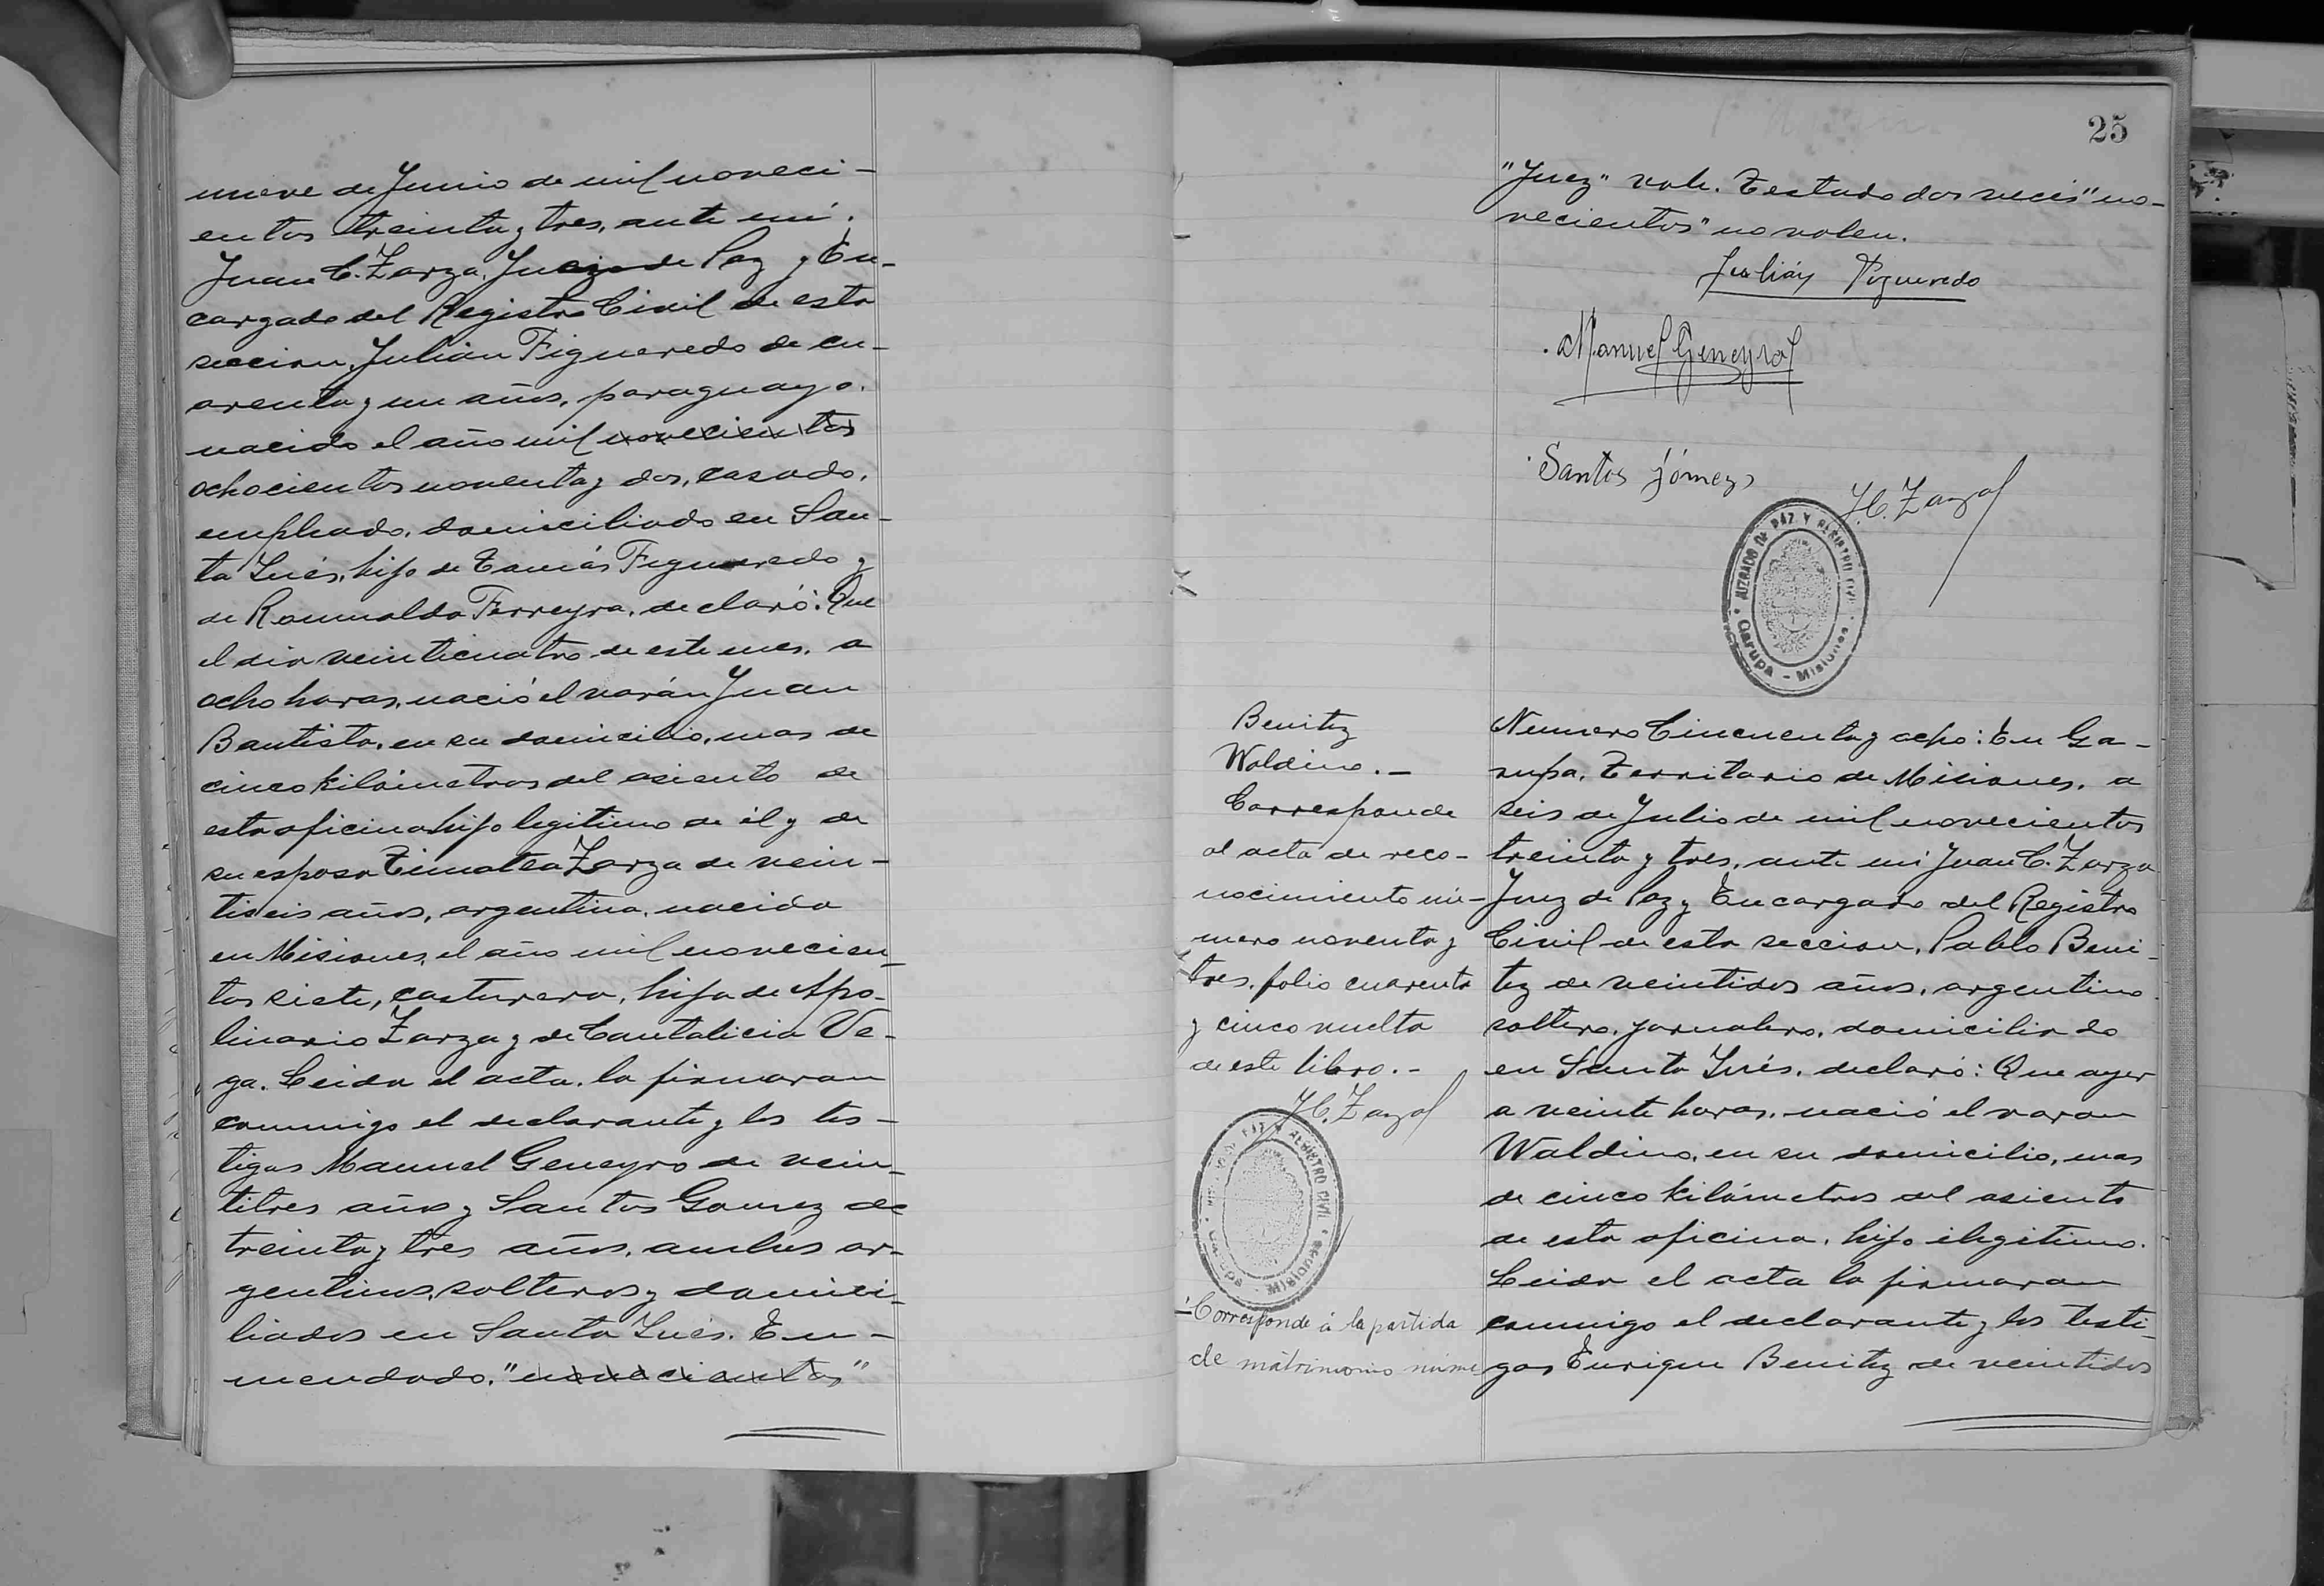 nueve de Junio de mil noveci-
entos treinta y tres, ante mí.
Juan C. Zarza, Juez de Paz y En-
cargado del Registro Civil de esta
seccion, Julián Figueredo de cu-
arenta y un años, paraguayo.
nacido el año mil novecientos
ochocientos noventa y dos, casado.
empleado, domiciliado en San-
ta Inés, hijo de Tomás Figueredo y
de Romualda Ferreyra, declaró: Que
el dia veinticuatro de este mes, a
ocho horas, nació el varón Juan
Bautista, en su domicilio, mas de
cinco kilómetros del asiento de
esta oficina hijo legitimo de él y de
su esposa Timotea Zarza de vein-
tiseis años, argentina, nacida
en Misiones, el año mil novecien-
tos siete, costurera, hija de Apo-
linario Zarza y de Cantalicia Ve-
ga. Leida el acta, la firmaron
conmigo el declarante y los tes-
tigos Manuel Geneyro de vein-
titres años y Santos Gomez de
treinta y tres años, ambos ar-
gentinos, solteros y domici-
liados en Santa Inés. En-
mendado. "novecientos"
25
"Juez" vale. Testado dos veces "no-
vecientos" no valen.
Julián Figueredo
Manuel Geneyro
Santos Gómez
J.C. Zarza
JUZGADO DE PAZ Y REGISTRO CIVIL
Garupá - Misiones
Benitez
Waldino.-
Corresponde
al acta de reco-
nocimiento nú-
mero noventa y
tres, folio cuarenta
y cinco vuelta
de este libro.-
J.C. Zarza
PAZ Y REGISTRO CIVIL
Garupá - Misiones
-Corresponde á la partida
de matrimonio núme
Numero Cincuenta y ocho: En Ga-
rupa, Territorio de Misiones, a
seis de Julio de mil novecientos
treinta y tres, ante mi Juan C. Zarza
Juez de Paz y Encargado del Registro
Civil de esta seccion, Pablo Beni-
tez de veintidos años, argentino
soltero, jornalero, domiciliado
en Santa Inés, declaró: Que ayer
a veinte horas, nació el varon
Waldino, en su domicilio, mas
de cinco kilómetros del asiento
de esta oficina, hijo ilegitimo.
Leida el acta la firmaron
conmigo el declarante y los testi-
gos Enrique Benitez de veintidos